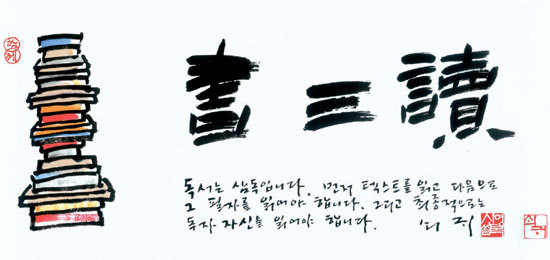 書三讀
독서는 삼독입니다. 먼저 텍스트를 읽고 다음으로
그 필자를 읽어야 합니다. 그리고 최종적으로는
독자 자신을 읽어야 합니다. 쇠귀